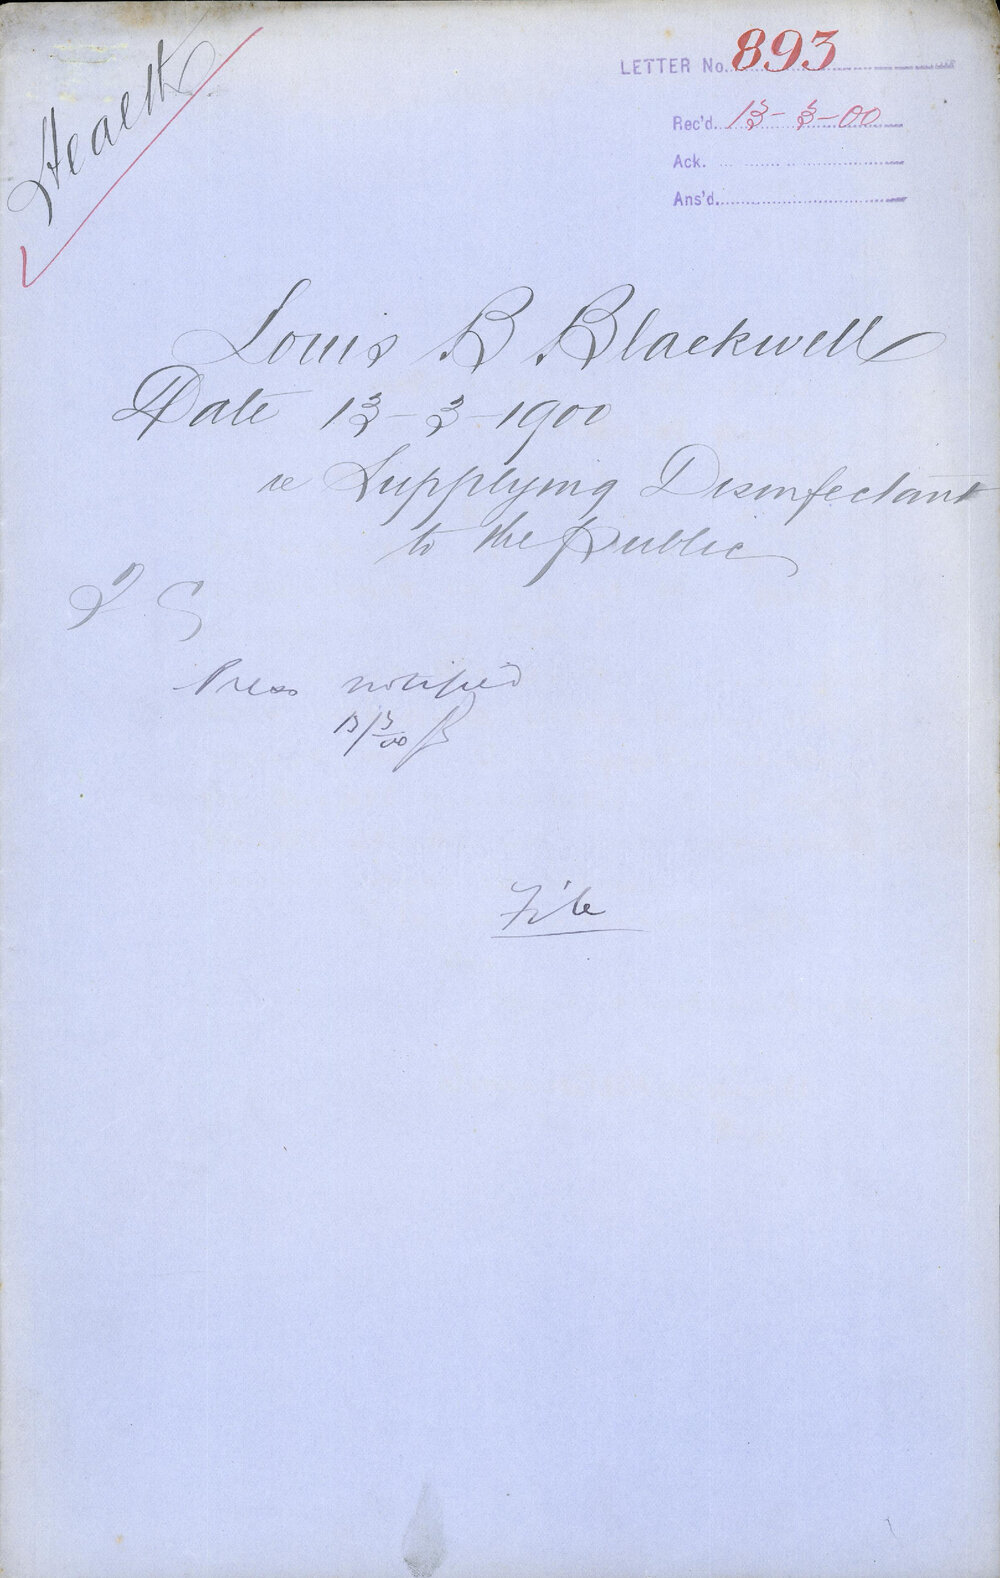 Health
LETTER No. 893
Rec'd. 13-3-00
Ack.
Ans'd.
Louis B Blackwell
Date 13-3-1900
re Supplying Disinfectant
to the public
Press notified
13/3/00
File